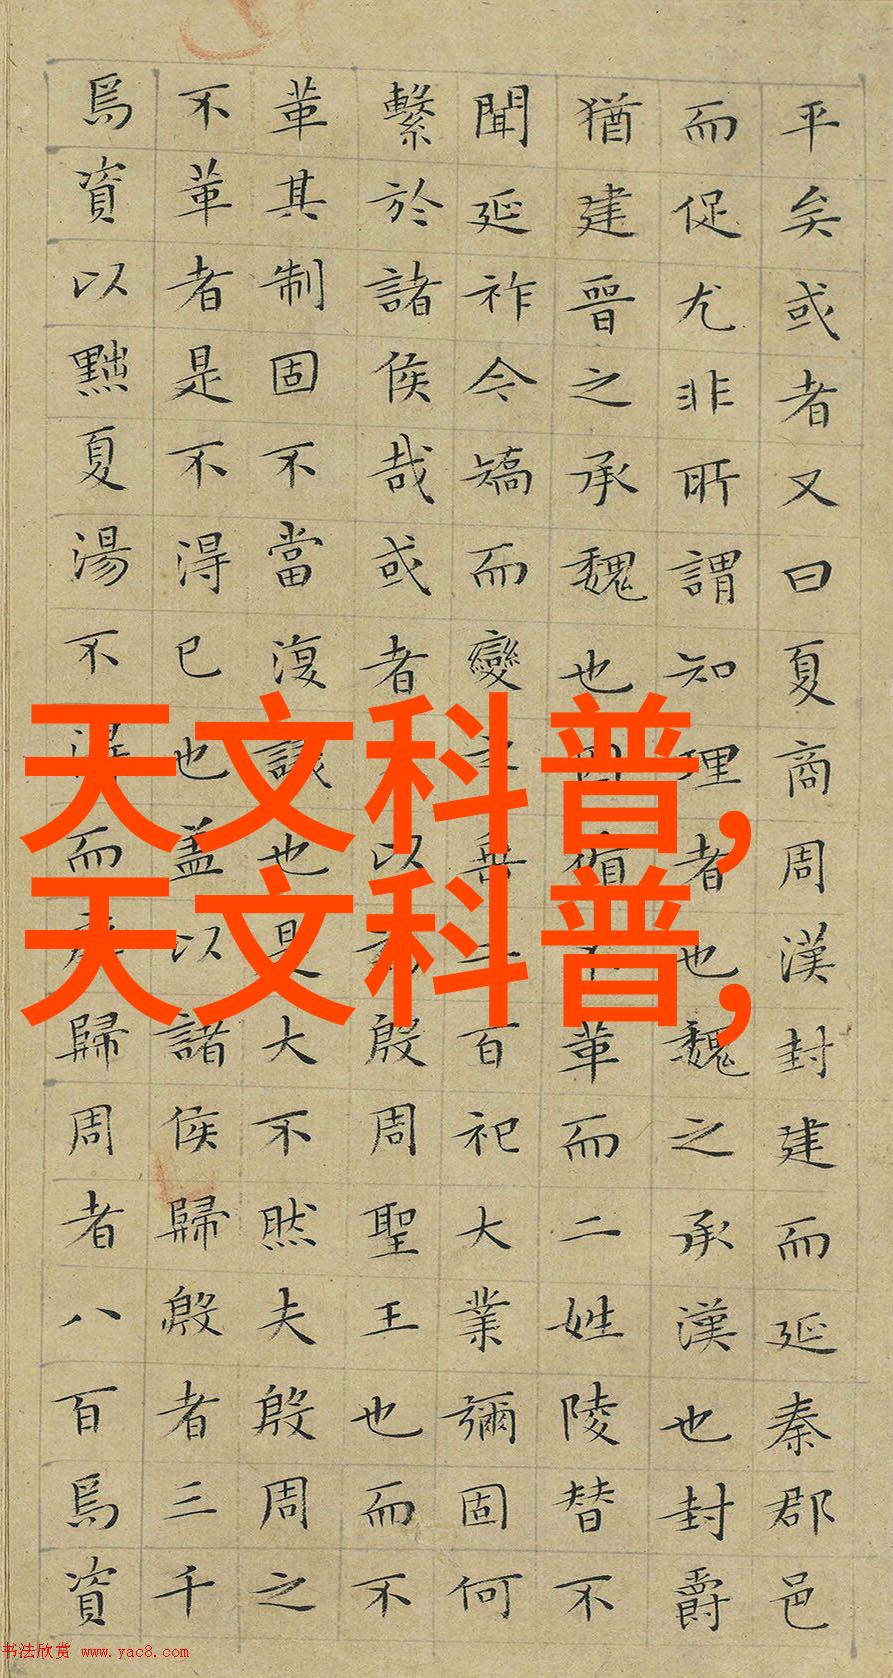 平矣或者又曰夏商周漢封建而延秦郡邑
而促尤非所謂知理者也魏之承漢也封爵
猶建晉之承魏也因循革而二姓陵替不
聞延祚今矯而變之垂二百祀大業彌固何
繫於諸侯哉或者以殷周聖王也而不
革其制固不當復議也是大不然夫殷周之
不革者是不得已也盖以諸侯歸殷者三千
焉資以黜夏湯不得而歸周者八百焉資
天文科普,
天文科普,
书法欣赏 www.yac8.com